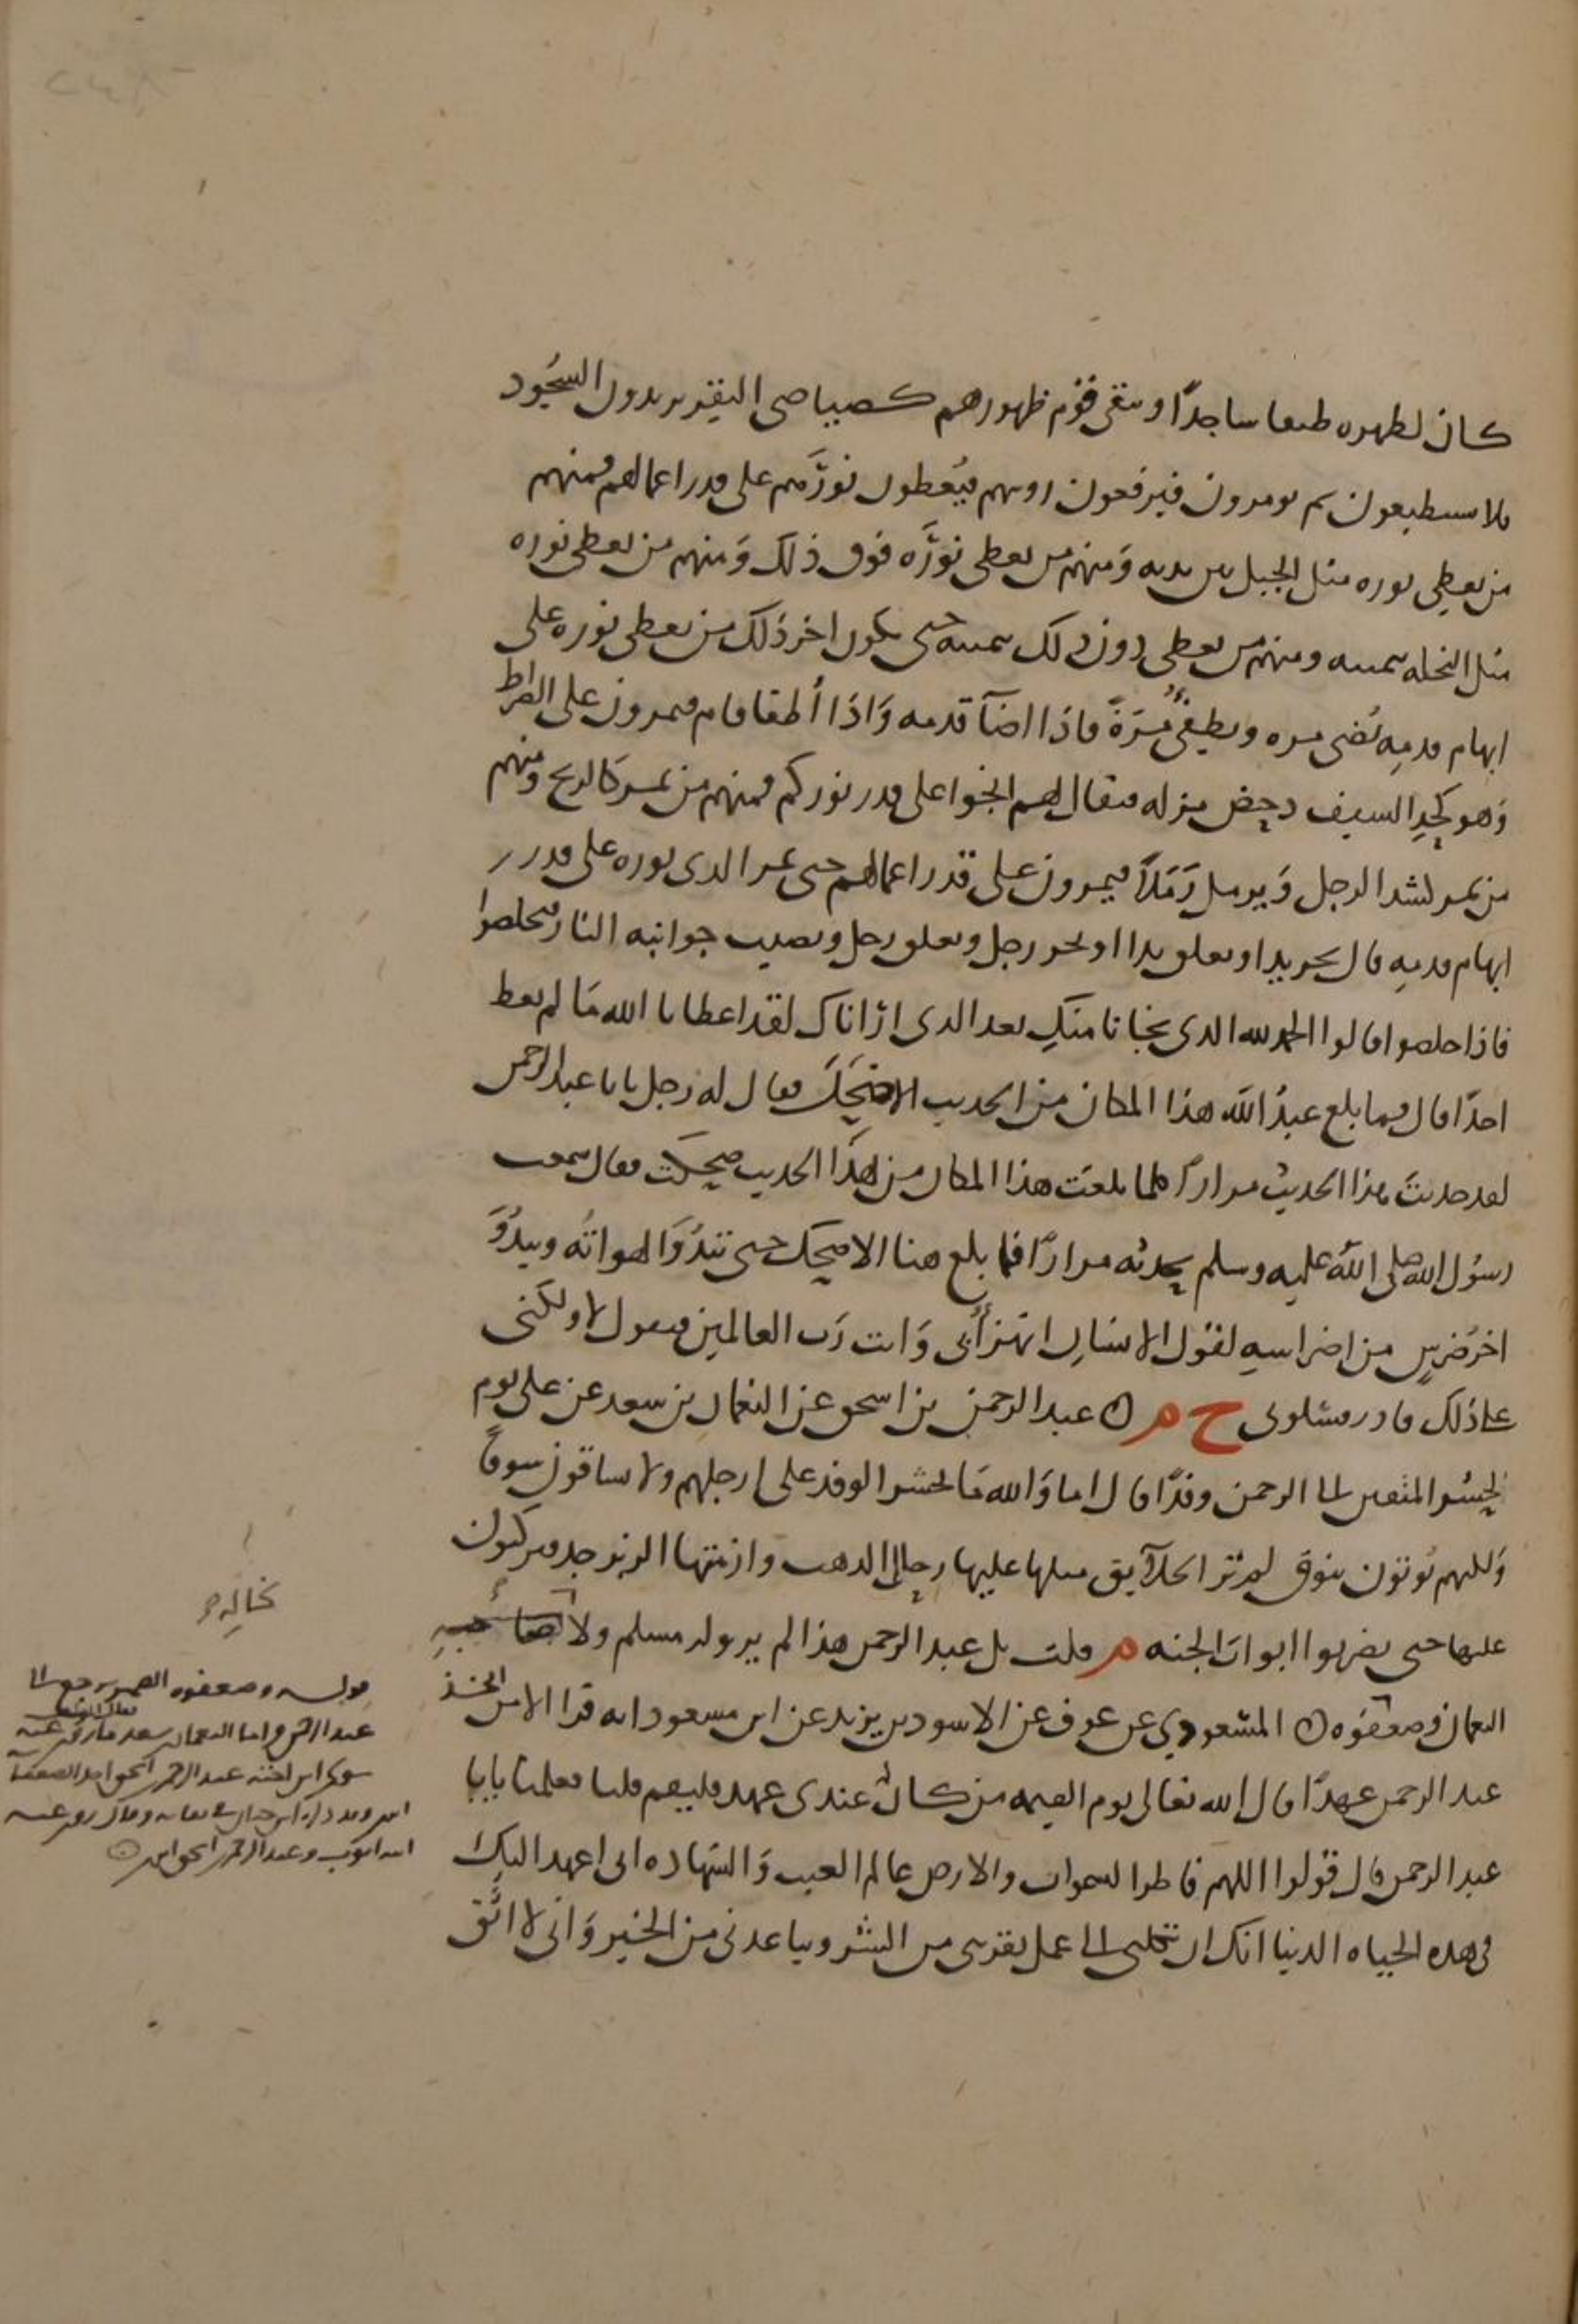 كان لظهره طبقا ساجدًا ويبقى قوم ظهورهم كصياصي البقر يريدون السجُود
فلا يستطيعون ثم يومرون فيرفعون روسهم فيُعطون نورَهم على قدر اعمالهم فمنهم
من يعطى نوره مثل الجبل بين يديه وَمنهم من يعطى نورَه فوق ذلك وَمنهم من يعطى نوره
مثل النخله بيمينه ومنهم من يعطى دون ذلك بيمينه حتى يكون اخر ذلك من يعطى نوره على
ابهام قدمِه يُضى مره ويطفِئُ مَرَةً فاذا اضآ قدمه وَاذَا أطفا قام فيمرون على الصراط
وَهو كحدِ السيف دحض مزله فيقال لهم انجوا على قدر نوركم فمنهم من يمر كالريح ومنهم
من يمر كشد الرجل وَيرمل رَمَلاً فيمرون على قدر اعمالهم حتى يمر الذى نوره على قدر
ابهام قدمِه قال يجر يدا ويعلق يدا او يجر رجل ويعلق رجل وتصيب جوانبه النار فيخلصوا
فاذا خلصوا قالوا الحمد لله الذى نجانا منكِ بعد الذى ارٰاناكِ لقد اعطانا الله مَا لم يعط
احدًا قال فما بلغ عبدُ الله هذا المكان من الحديث الا ضحِكَ فقال له رَجل يابا عبد الرحمن
لقد حدثتَ بهذا الحديث مرارًا كلما بلغتَ هذا المكان من هَذا الحديث ضحكتَ فقال سمعت
رسُول الله صلى الله عليه وسلم يحدثه مرارًا فما بلغ هنا الا ضحِك حتى تبدُوَا لهواتُه ويبدُوَ
اخرُ ضرسٍ من اضراسِهِ لقول الانسانِ اتهزأُ بى وَانت رَب العالمين فيقول لا ولكنى
على ذلك قادر فسَلونى ح م ۞ عبد الرحمن بن اسحق عن النعمان بن سعد عن على يوم
نحشر المتقين الى الرحمن وفدًا قال اما وَالله مَا يحشر الوفد على ارجلهم ولا يساقون سوقًا
وَلكنهم يُوتون بنوق لم تر الخلآيق مثلها عليها رحال الذهب وازمتها الزبرجد فيركبون
عليها حتى يضربوا ابوابَ الجنه م قلت بل عبد الرحمن هذا لم يرو له مسلم ولا
النعمان وضعفوه ۞ المسعودي عن عوف عن الاسود بن يزيد عن ابن مسعود انه قرا الا من اتخذ
عند الرحمن عهدًا قال الله تعالى يوم القيمه من كان عندى عهد فليقم قلنا فعلمنا يابا
عبد الرحمن قال قولوا اللهم فاطر السموات والارض عالم الغيب وَالشهاده انى اعهد اليك
فى هذه الحياه الدنيا انك ان تكلنى الى عمل يقربنى من الشر ويباعدنى من الخير وَانى لا اثق
قوله وضعفوه الضمير يرجع الى
عبد الرحمن واما النعمان بن سعد فما روى عنه
سوى ابن اخته عبد الرحمن بن اسحق احد الضعفاء